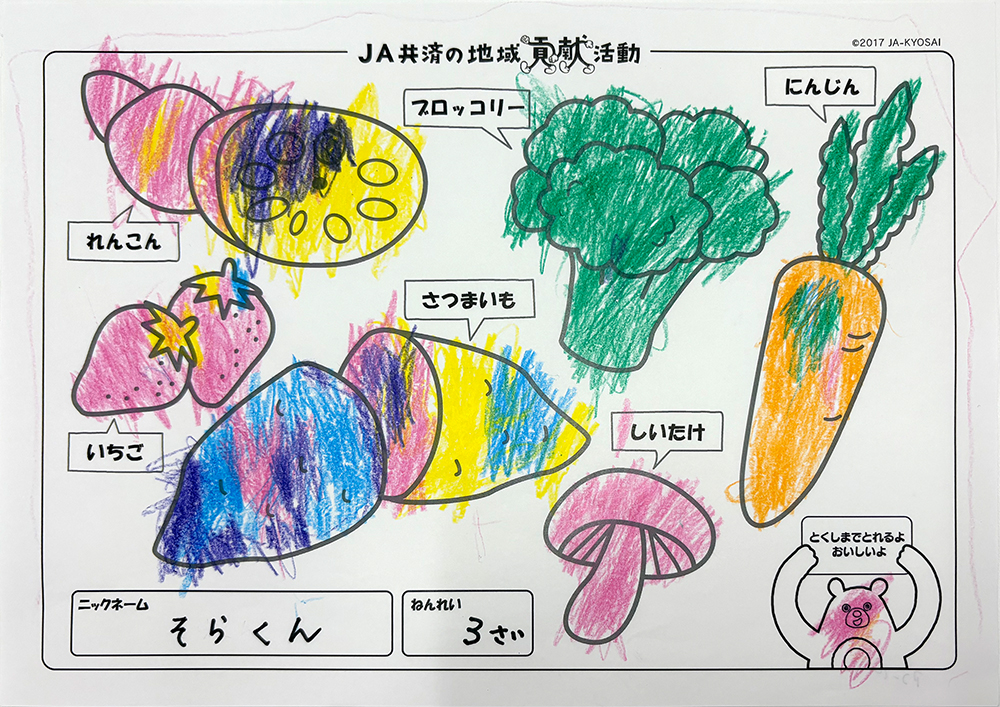 ©2017 JA-KYOSAI
JA共済の地域貢献活動
にんじん
ブロッコリー
れんこん
さつまいも
いちご
しいたけ
とくしまでとれるよ
おいしいよ
ニックネーム
そらくん
ねんれい
3さい